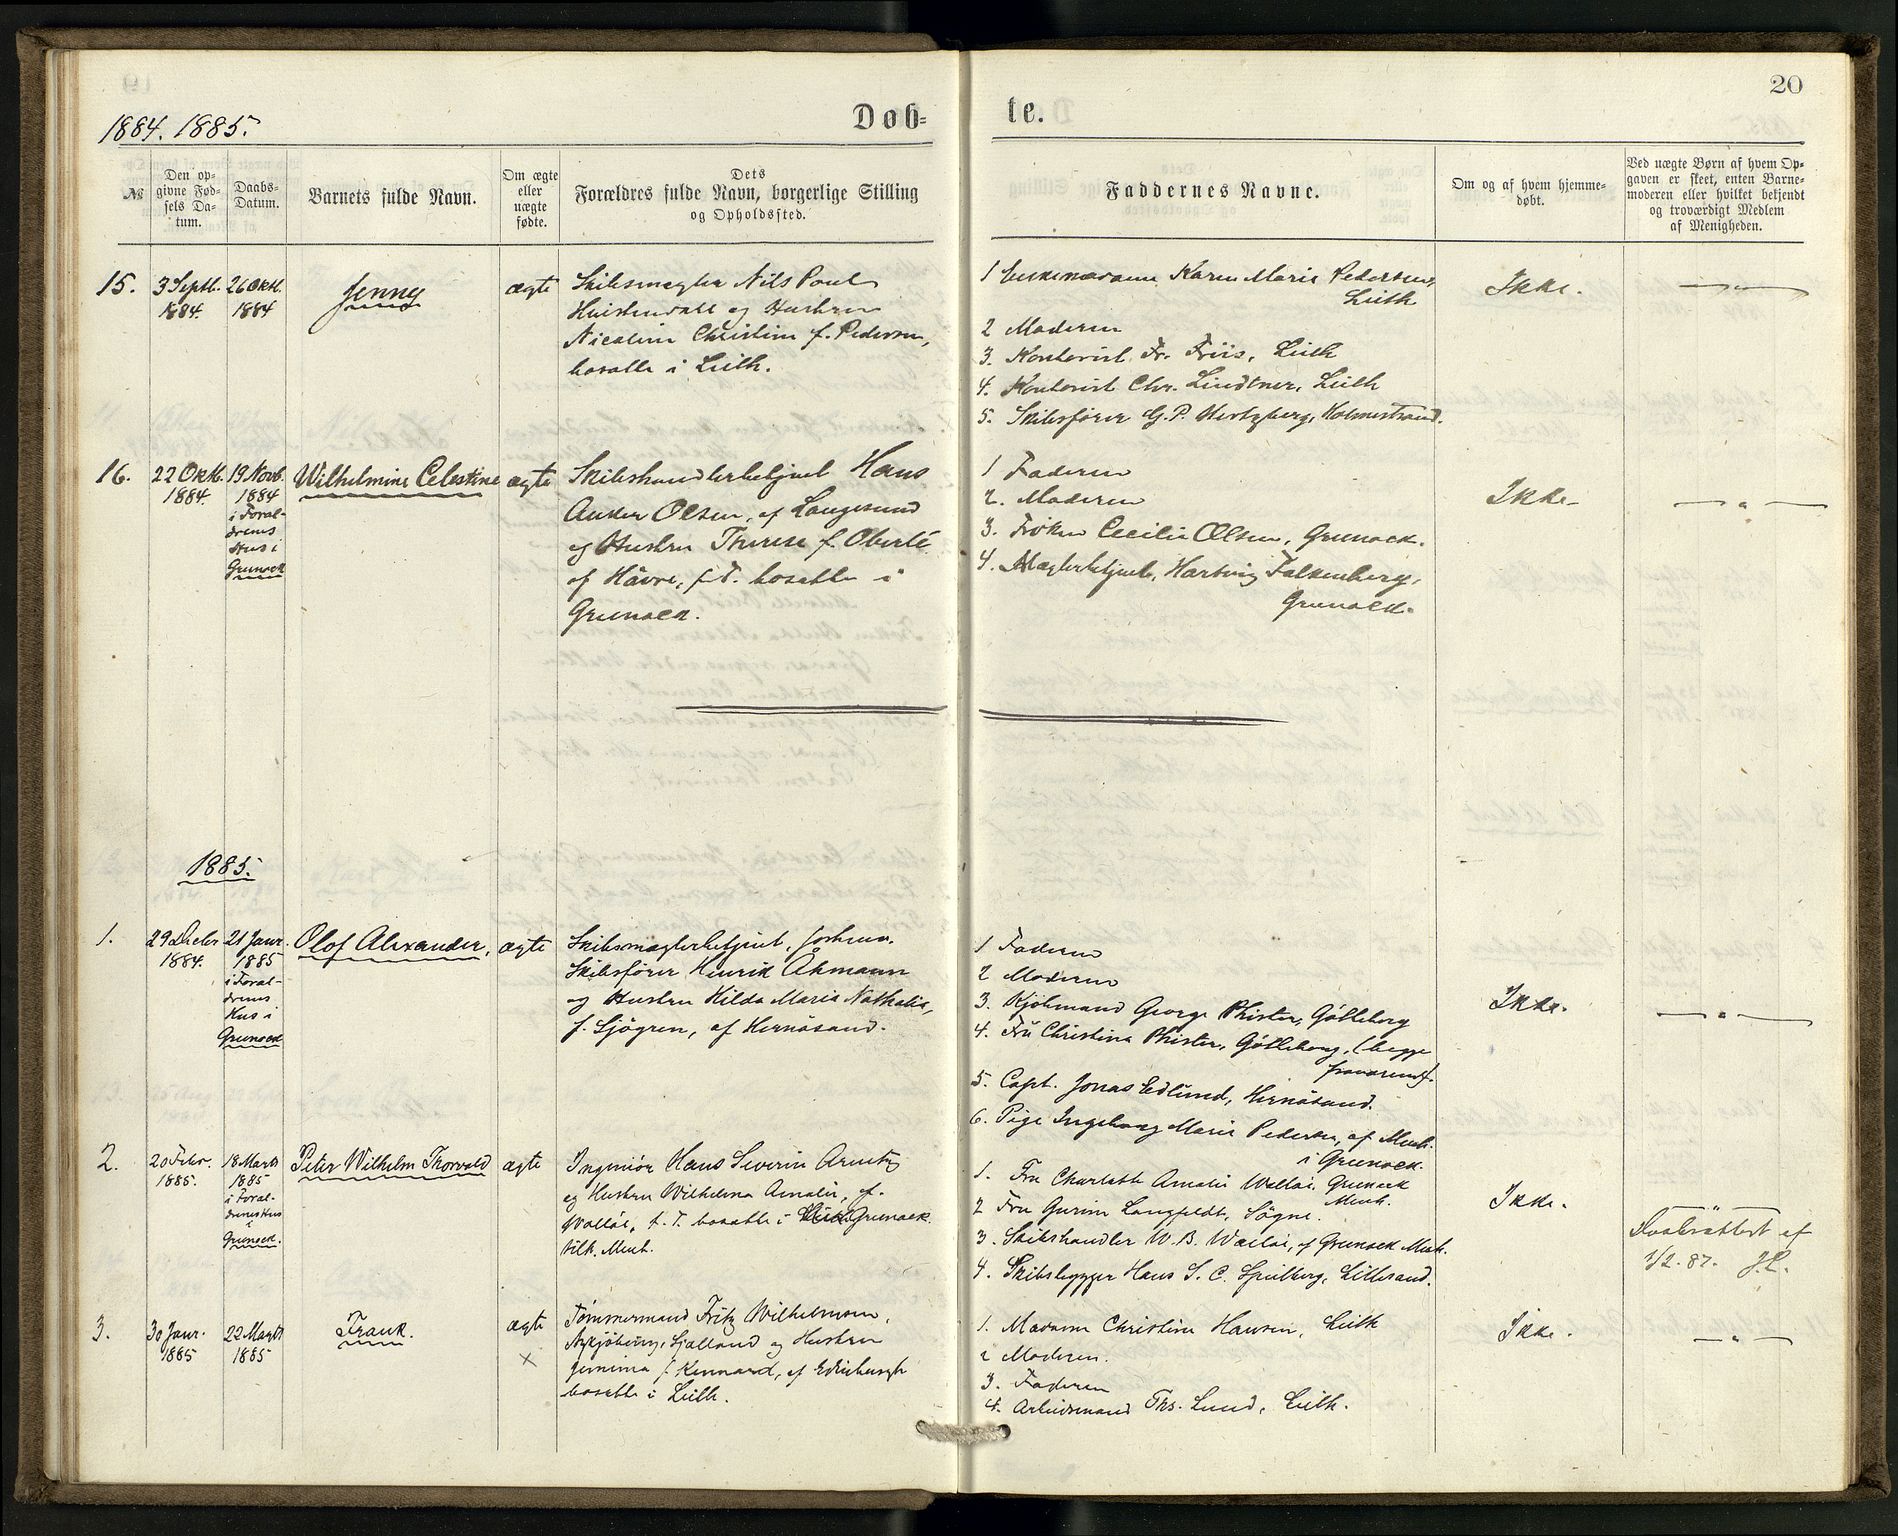 20
1884. 1885.
Døb-
te.
№
Den op-
givne Fød-
sels Da-
tum.
Daabs-
Datum.
Barnets fulde Navn.
Om ægte
eller
uægte
fødte.
Dets
Forældres fulde Navn, borgerlige Stilling
og Opholdssted.
Faddernes Navne.
Om og af hvem hjemme-
døbt.
Ved uægte Børn af hvem Op-
gaven er skeet, enten Barne-
moderen eller hvilket bekjendt
og troværdigt Medlem
af Menigheden.
15.
3 Septb.
1884.
26 Oktb.
1884
Jenny
ægte
Skibsmægler Nils Poul
og Hustru
Nicoline Christine f. Pedersen,
bosatte i Leith.
1 Karen Marie Pedersen,
Leith
2 Moderen
3. Kontorist Fr. Friis, Leith
4. Kontorist Chr. Lindtner, Leith
5. Skibsfører G. P. Hertzberg, Holmestrand.
Ikke.
— " —
16.
22 Oktb.
1884.
19 Novb.
1884
i Foræl-
drenes
Hus i
Greenock
Wilhelmine Celestine
ægte
Skibshandlerbetjent Hans
Anker Olsen, af Langesund
og Hustru Therese f. Oberlé
af Håvre, p. T. bosatte i
Greenock.
1 Faderen
2. Moderen
3. Frøken Cecilie Olsen, Greenock.
4. Mæglerbetjent, Hartvig Falkenberg,
Greenock.
Ikke
— " —
1885.
1.
29 Decbr
1884.
21 Janr.
1885
i Foræl-
drenes
Hus i
Greenock
Olof Alexander,
ægte
Skibsmæglerbetjent, forhenv.
Skibsfører Henrik Åhmann
og Hustru Hilda Maria Nathalia,
f. Sjögren, af Hernösand.
1 Faderen
2 Moderen
3. Kjöbmand George Phister, Götteborg
4. Fru Christina Phister, Götteborg, (begge
fraværende).
5. Capt. Jonas Edlund, Hernösand.
6. Pige Ingeborg Marie Pedersen, af Menh.
i Greenock.
Ikke.
— " —
2.
20 Febr.
1885.
18 Marts
1885
i Foræl-
drenes Hus
i
Greenock.
Peter Wilhelm Thorvald
ægte
Ingeniör Hans Severin Arentz
og Hustru Wilhelma Amalie, f.
Walløe, p. T. bosatte i Greenock.
tilh. Menh.
1. Fru Charlotte Amalie Walløe, Greenock
Menh.
2 Fru Gurine Langfeldt, Sögne.
3. Skibshandler W. B. Walløe, af Greenock Menh.
4. Skibsbygger Hans S. C. Spilberg, Lillesand.
Ikke.
Daabsattest af
1/2. 87. J.L.
3.
30 Janr.
1885
22 Marts
1885
Frank.
ægte
×
Tömmermand Fritz Wilhelmsen,
Nykjöbing, Sjælland og Hustru
Jemima f. Kennard, af Edinburgh
bosatte i Leith.
1. Madame Christine Hansen, Leith
2 Moderen.
3. Faderen
4. Arbeidsmand Ths. Lund, Leith.
Ikke.
— " —